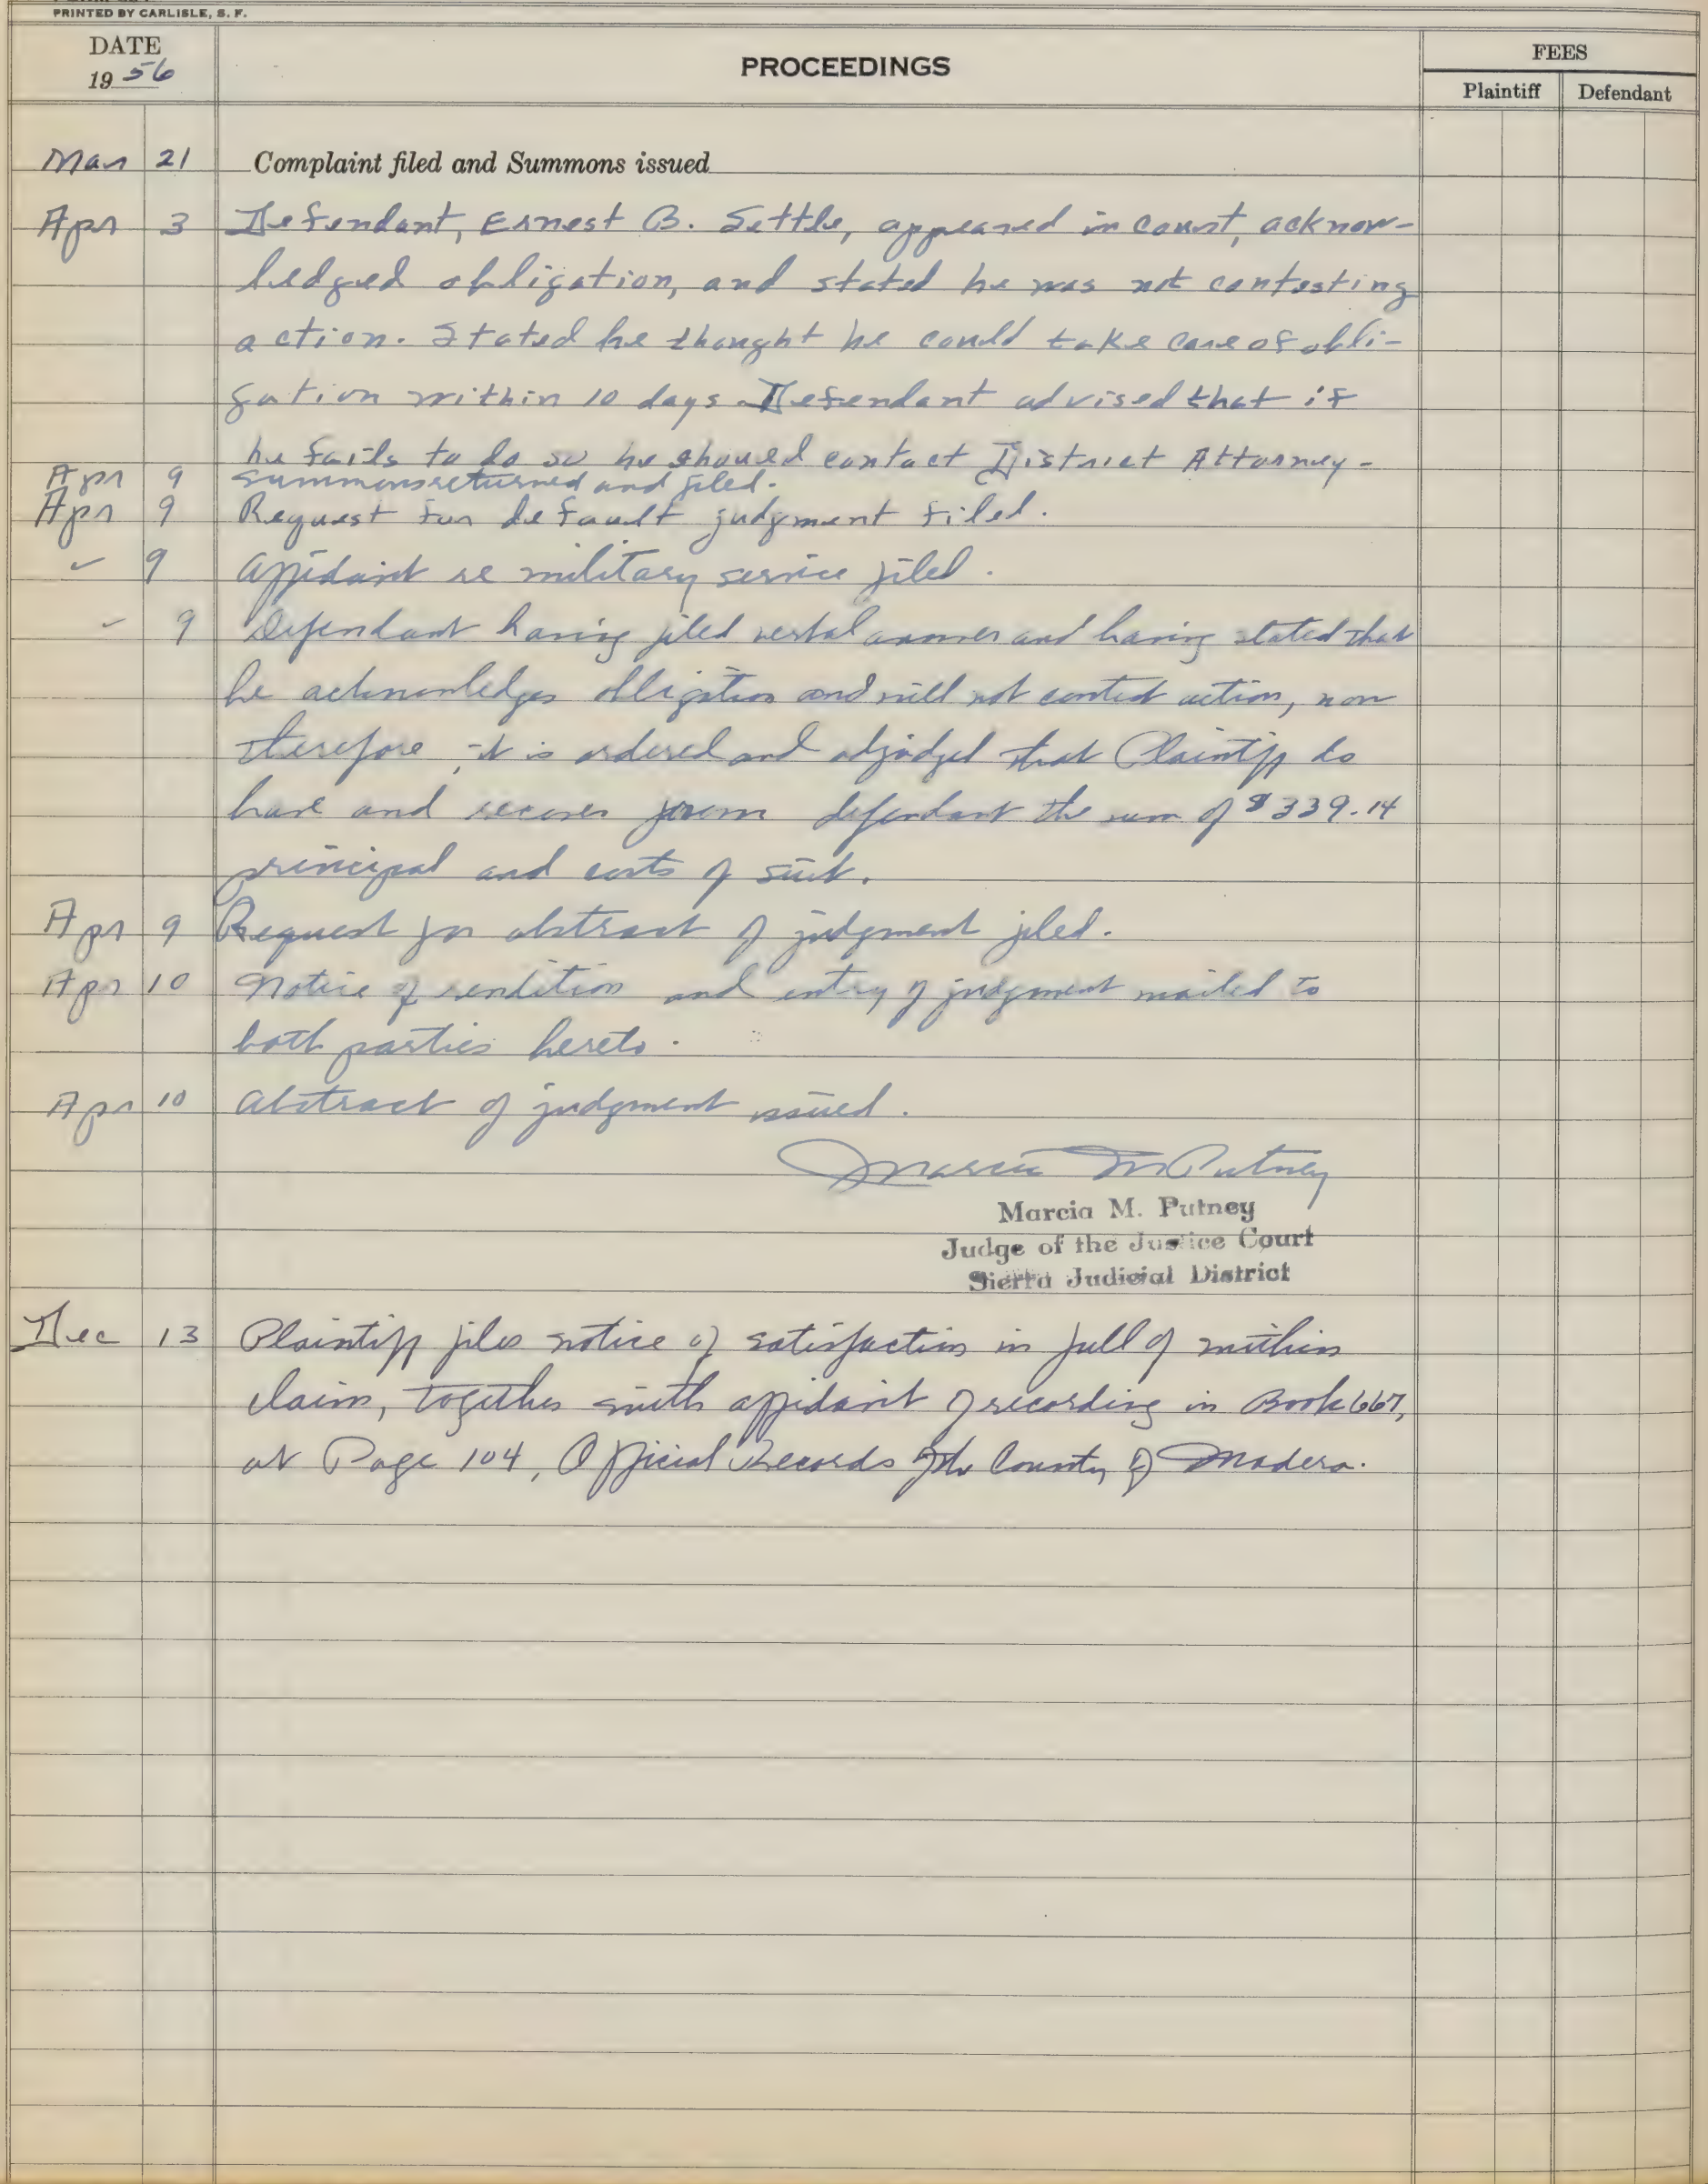 PRINTED BY CARLISLE, S. F.
DATE
19 56
PROCEEDINGS
FEES
Plaintiff Defendant
Mar 21 Complaint filed and Summons issued
Apr 3 Defendant, Ernest B. Settle, appeared in court, acknow-
ledged obligation, and stated he was not contesting
action. Stated he thought he could take care of obli-
gation within 10 days. Defendant advised that if
he fails to do so he should contact District Attorney-
Apr 9 Summons returned and filed.
Apr 9 Request for default judgment filed.
✓ 9 Affidavit re military service filed.
✓ 9 Defendant having filed verbal answer and having stated that
he acknowledges obligation and will not contest action, now
therefore, it is ordered and adjudged that Plaintiff do
have and recover from defendant the sum of $339.14
principal and costs of suit.
Apr 9 Request for abstract of judgment filed.
Apr 10 Notice of rendition and entry of judgment mailed to
both parties hereto.
Apr 10 Abstract of judgment issued.
Marcia M Putney
Marcia M. Putney
Judge of the Justice Court
Sierra Judicial District
Dec 13 Plaintiff files notice of satisfaction in full of within
claim, together with affidavit of recording in Book 667,
at Page 104, Official Records of the County of Madera.